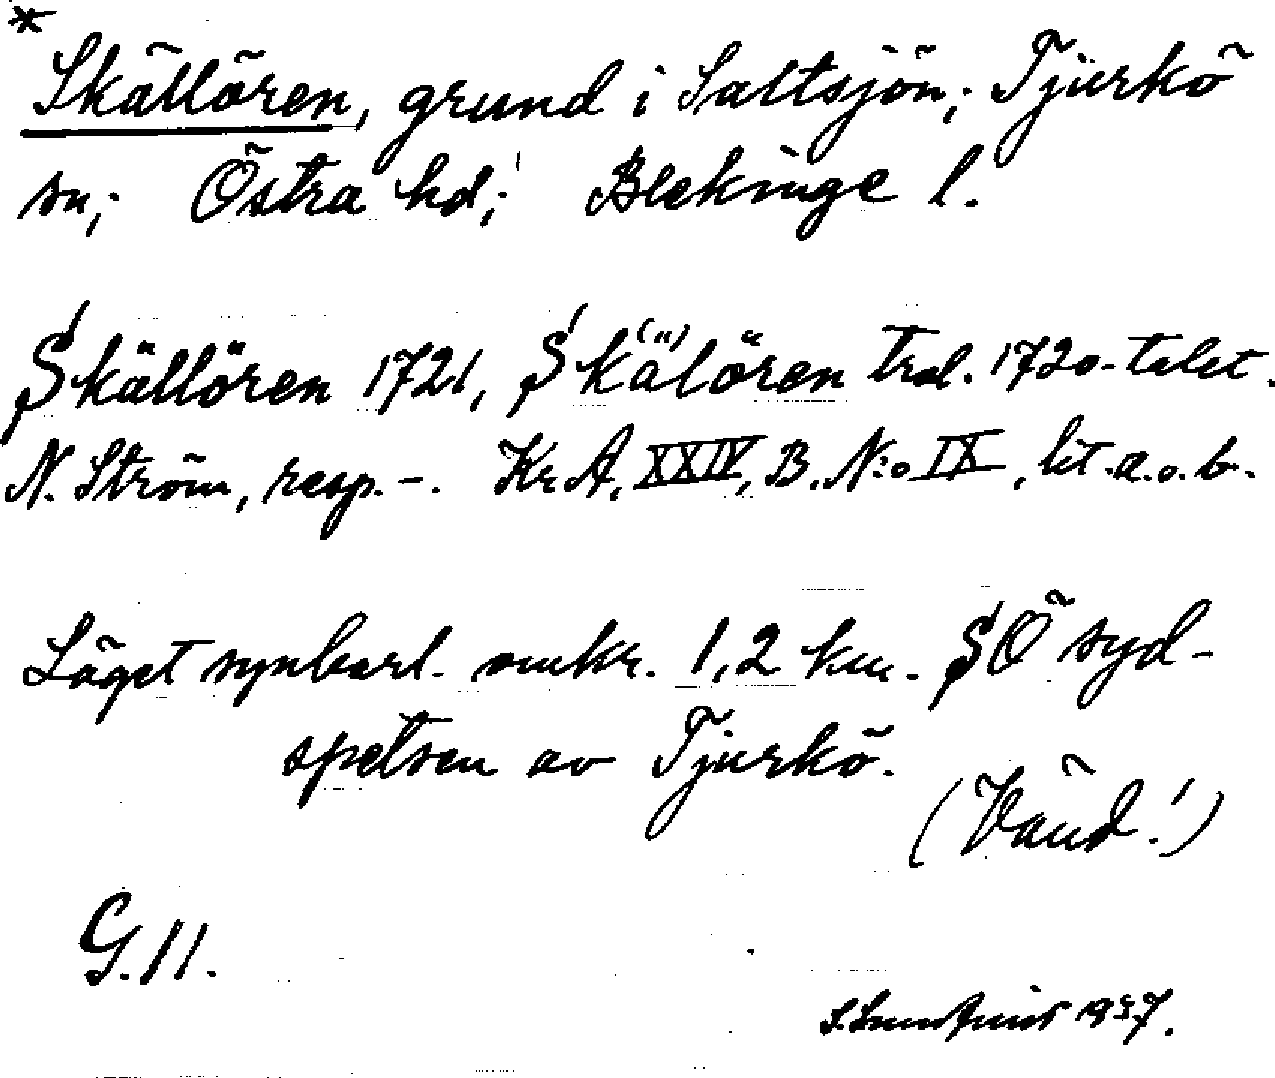 * Skällören, grund i Saltsjön; Tjurkö
sn; Östra hd; Blekinge l.
Skällören 1721, Skä(")lören trol. 1720-talet.
N. Ström, resp. -. Kr. A, XXIV, B. N:o IX, lit. a. o. b.
Läget synbarl. omkr. 1,2 km. SÖ syd-
spetsen av Tjurkö.
(Vänd!)
G. 11.
1937.